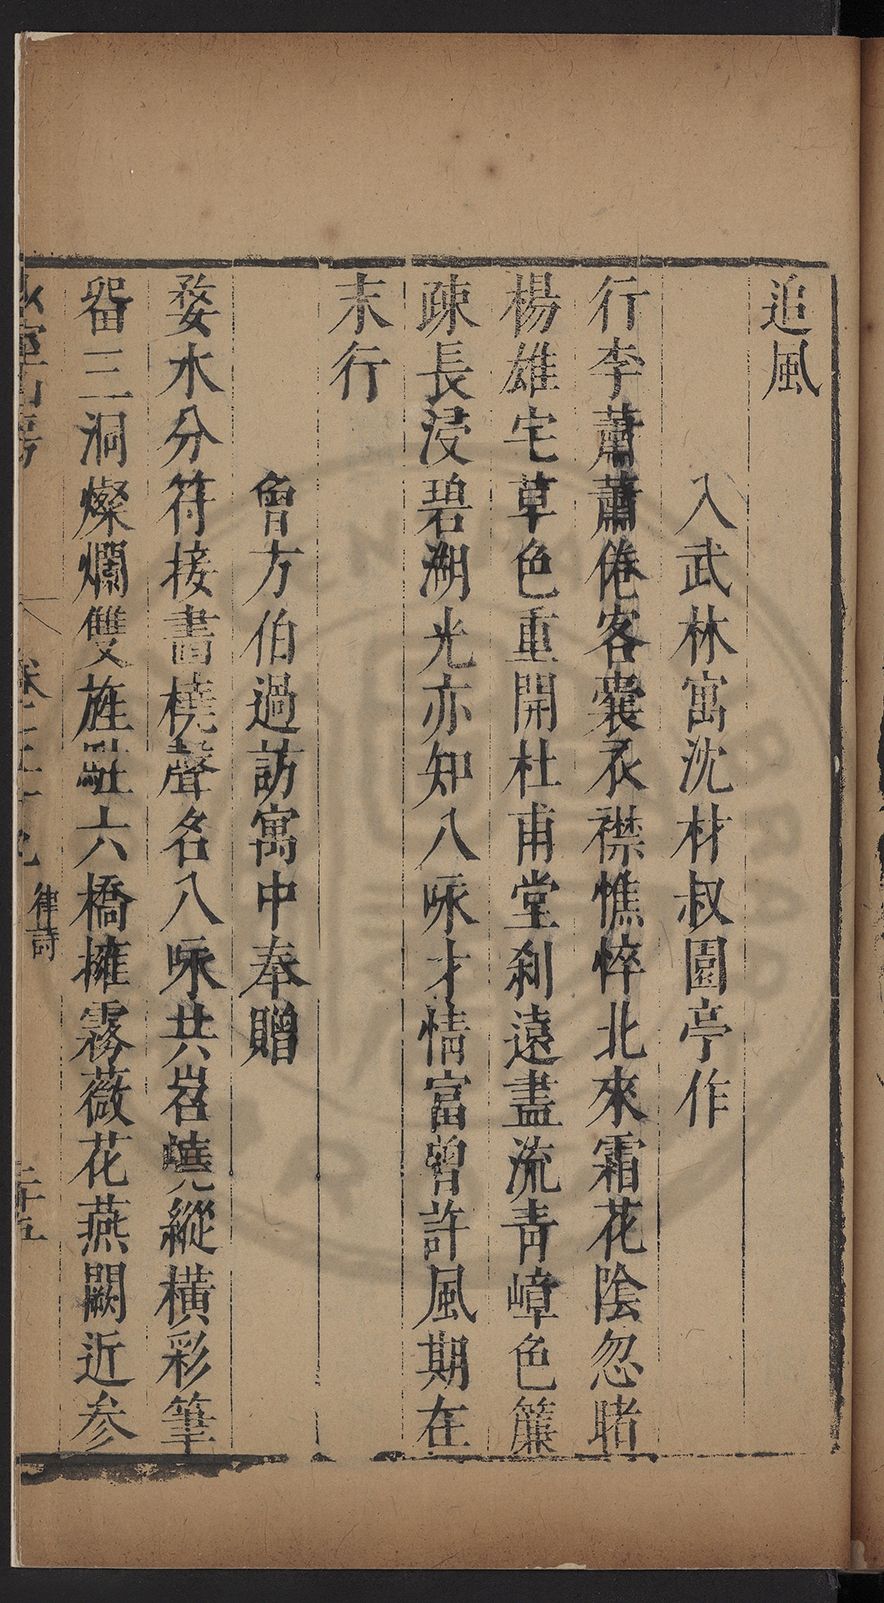 追風
入武林寓沈材叔園亭作
行李蕭蕭倦客囊衣襟憔悴北來霜花陰忽睹
楊雄宅草色重開杜甫堂刹遠盡流青嶂色簾
疎長浸碧湖光亦知八咏才情富曾許風期在
末行
曾方伯過訪寓中奉贈
婺水分符接畫橈聲名八咏共岧嶤縱橫彩筆
畱三洞燦爛雙旌駐六橋擁霧薇花燕闕近参
少室山房
卷之五十九
律詩
二十五